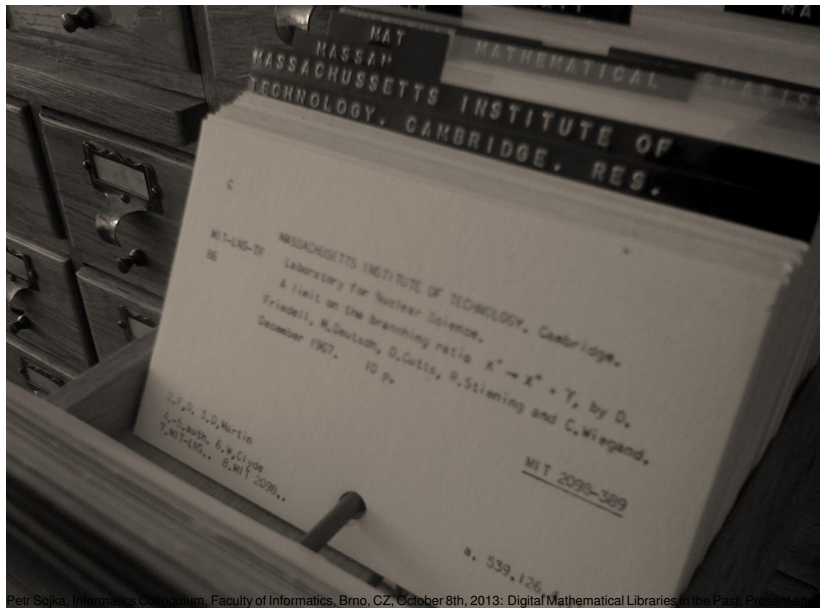 MAT
MASSAM
MATHEMATICAL
MASSACHUSSETTS INSTITUTE OF
TECHNOLOGY. CAMBRIDGE. RES.
C
MIT-LNS-TR
86
MASSACHUSETTS INSTITUTE OF TECHNOLOGY, Cambridge.
Laboratory for Nuclear Science.
A limit on the branching ratio
by D.
Friedell, M.Deutsch, D.Cutts, R.Stiening and C.Wiegand.
December 1967. 10 p.
MIT 2098-389
2.F,D. 3.D,Martin
auth. 6.W,Clyde
7.MIT-LNS.. 8.MIT 2098..
a. 539.126.
Petr Sojka, Informatics Colloquium, Faculty of Informatics, Brno, CZ, October 8th, 2013: Digital Mathematical Libraries in the Past, Present and